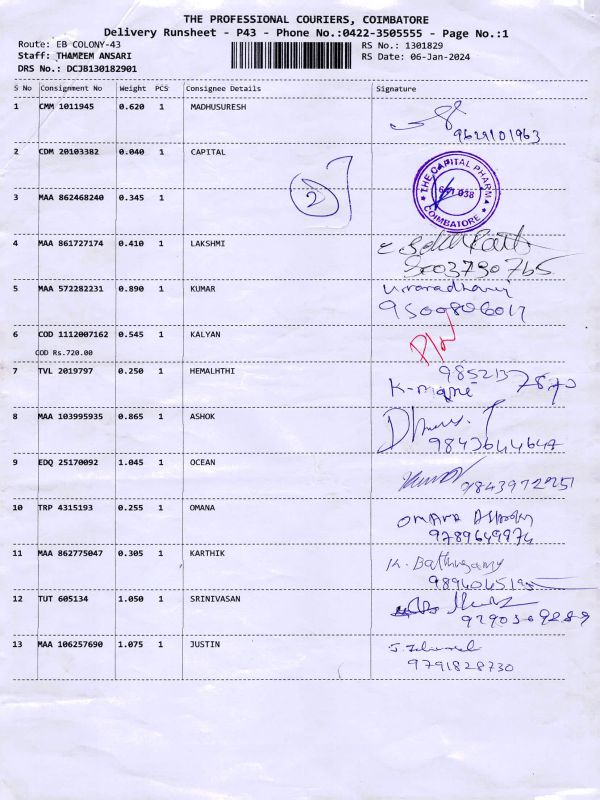 THE PROFESSIONAL COURIERS, COIMBATORE
Delivery Runsheet - P43 - Phone No.:0422-3505555 - Page No.:1
Route: EB COLONY-43 RS No.: 1301829
Staff: THAMEEM ANSARI RS Date: 06-Jan-2024
DRS No.: DCJB130182901
S No Consignment No Weight PCS Consignee Details Signature
1 CMM 1011945 0.620 1 MADHUSURESH
9629101963
2 CDM 20103382 0.040 1 CAPITAL
THE CAPITAL PHARMA
COIMBATORE
2
3 MAA 862468240 0.345 1
4 MAA 861727174 0.410 1 LAKSHMI
9003790765
5 MAA 572282231 0.890 1 KUMAR
6 COD 1112007162 0.545 1 KALYAN
COD Rs.720.00
7 TVL 2019797 0.250 1 HEMALHTHI
8 MAA 103995935 0.865 1 ASHOK
9843644647
9 EDQ 25170092 1.045 1 OCEAN
10 TRP 4315193 0.255 1 OMANA
OMANA
9789649974
11 MAA 862775047 0.305 1 KARTHIK
12 TUT 605134 1.050 1 SRINIVASAN
13 MAA 106257690 1.075 1 JUSTIN
9791828730